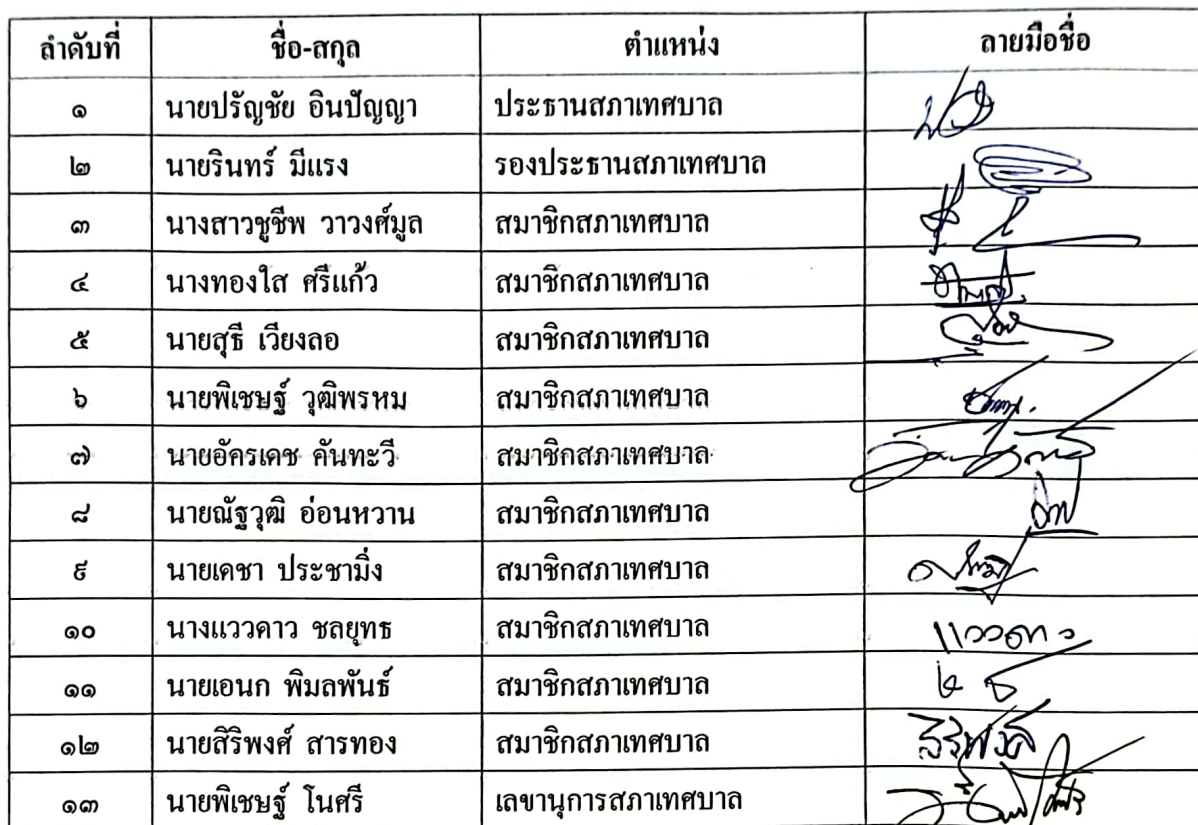 ลำดับที่ ชื่อ-สกุล ตำแหน่ง ลายมือชื่อ
๑ นายปรัญชัย อินปัญญา ประธานสภาเทศบาล
๒ นายรินทร์ มีแรง รองประธานสภาเทศบาล
๓ นางสาวชูชีพ วาวงศ์มูล สมาชิกสภาเทศบาล
๔ นางทองใส ศรีแก้ว สมาชิกสภาเทศบาล
๕ นายสุธี เวียงลอ สมาชิกสภาเทศบาล
๖ นายพิเชษฐ์ วุฒิพรหม สมาชิกสภาเทศบาล
๗ นายอัครเดช คันทะวี สมาชิกสภาเทศบาล
๘ นายณัฐวุฒิ อ่อนหวาน สมาชิกสภาเทศบาล
๙ นายเดชา ประชามิ่ง สมาชิกสภาเทศบาล
๑๐ นางแววดาว ชลยุทธ สมาชิกสภาเทศบาล แววดาว
๑๑ นายเอนก พิมลพันธ์ สมาชิกสภาเทศบาล
๑๒ นายสิริพงศ์ สารทอง สมาชิกสภาเทศบาล สิริพงศ์
๑๓ นายพิเชษฐ์ โนศรี เลขานุการสภาเทศบาล